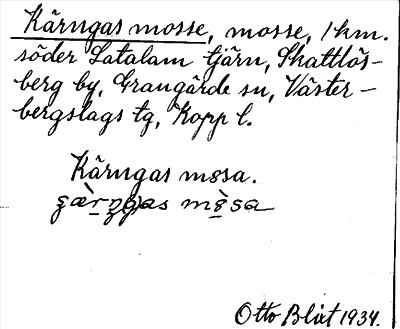 Kärngas mosse, mosse, 1 km.
söder Latalam tjärn, Skattlös-
berg by, Grangärde sn, Väster-
bergslags tg, Kopp l.
Kärngas måsa.
Otto Blixt 1934.